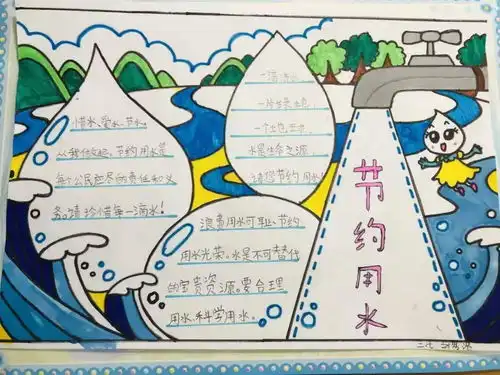 惜水、爱水、节水。
从我做起、节约用水是
每个公民应尽的责任和义
务。请珍惜每一滴水！
一滴清水，
一片绿地，
一个地球。
水是生命之源，
请您节约用水
浪费用水可耻，节约
用水光荣。水是不可替代
的宝贵资源。要合理
用水、科学用水。
节约用水